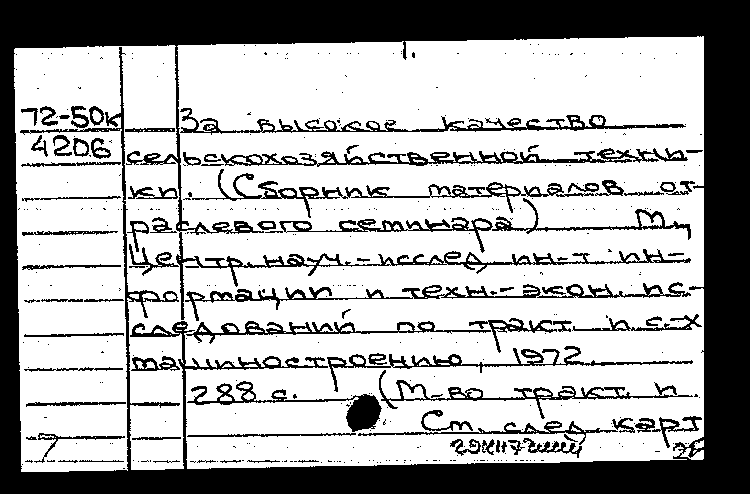 72-50к За высокое качество
4206 сельскохозяйственной техни-
ки. (Сборник материалов от-
раслевого семинара) М.,
Центр. науч.-исслед ин-т ин-
формации и техн.-экон. ис-
следований по тракт. и с.-х
машиностроению, 1972.
288 с. (М-во тракт. и
См. след. карт
7